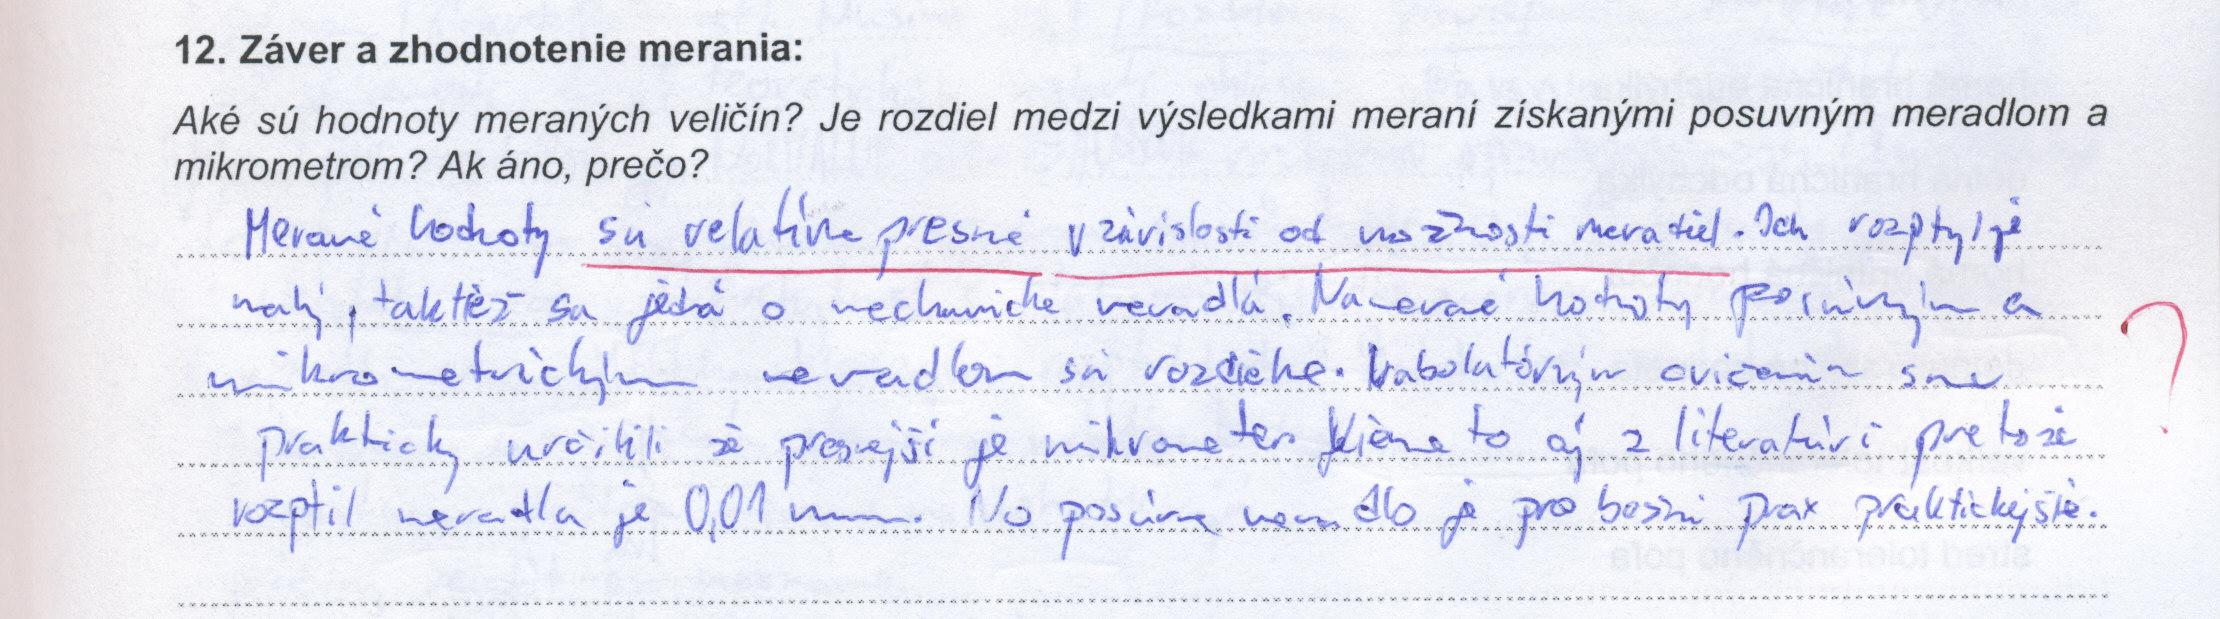 12. Záver a zhodnotenie merania:
Aké sú hodnoty meraných veličín? Je rozdiel medzi výsledkami meraní získanými posuvným meradlom a
mikrometrom? Ak áno, prečo?
Merané hodnoty sú relatívne presné v závislosti od možnosti meradiel. Ich rozptyl je
malý, taktéž sa jedná o mechanické meradlá. Namerané hodnoty posúvnym a
mikrometrickým meradlom sú rozdielne. Labolatórnym cvičením sme
prakticky určilili že presnejší je mikrometer. Vieme to aj z literatúri pretože
rozptil meradla je 0,01 mm. No posúvne meradlo je pro bežni prax praktickejšie.
?